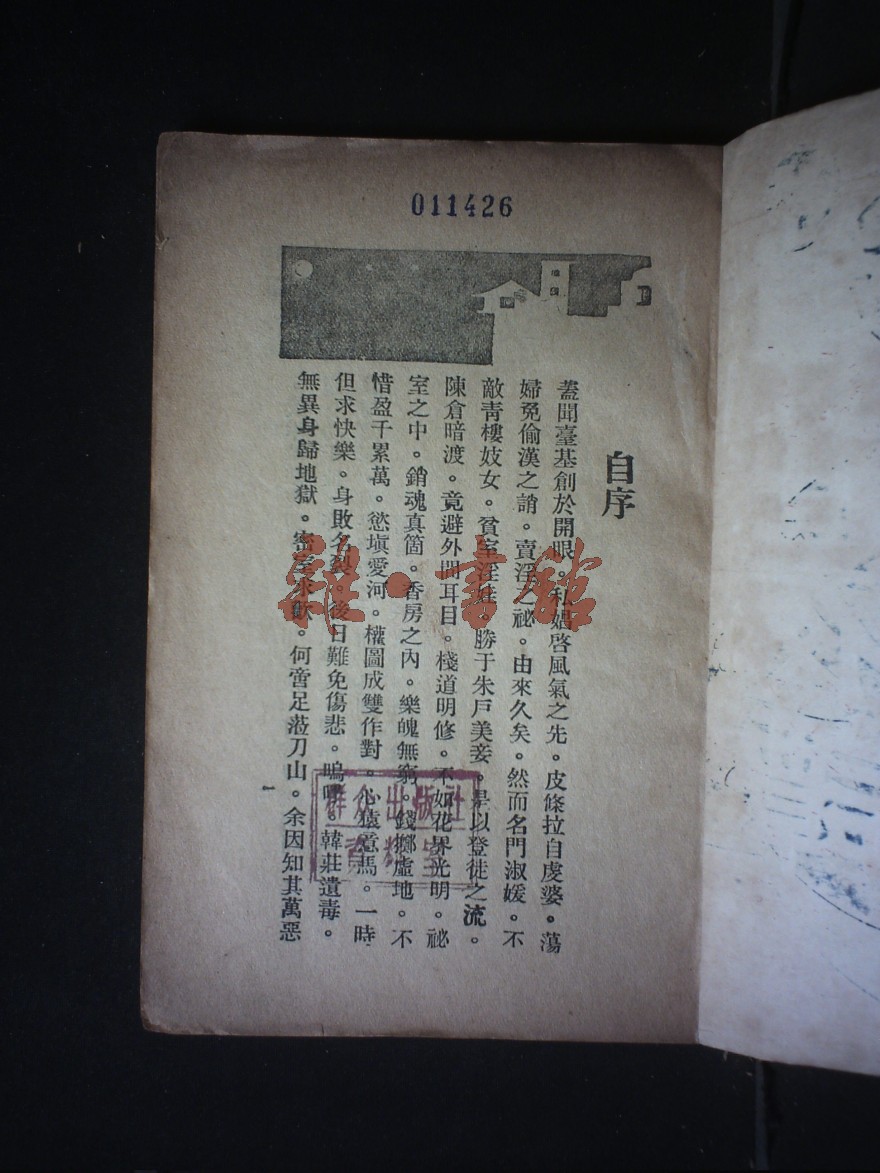 011426
自序
蓋聞臺基創於開眼。私娼啓風氣之先。皮條拉自虔婆。蕩
婦免偷漢之誚。賣淫之祕。由來久矣。然而名門淑媛。不
敵青樓妓女。貧室淫娃。勝于朱戶美妾。是以登徒之流。
陳倉暗渡。竟避外間耳目。棧道明修。不如花界光明。祕
室之中。銷魂真箇。香房之內。樂魄無窮。錢擲虛地。不
惜盈千累萬。慾塡愛河。權圖成雙作對。心猿意馬。一時
但求快樂。身敗名裂。後日難免傷悲。嗚呼。韓莊遺毒。
無異身歸地獄。密室求歡。何啻足蒞刀山。余因知其萬惡
一
群众出版社
羅書館